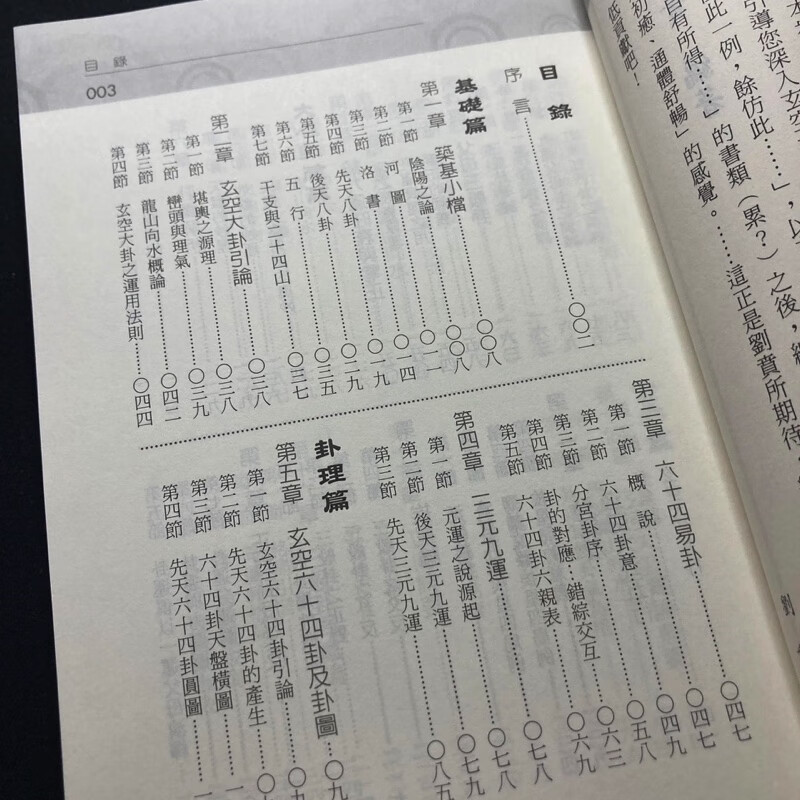 劉
本
引導您深入玄空
此一例，餘仿此……」，以
自有所得……」的書類（累？）之後，
初癒、通體舒暢」的感覺。……這正是劉賁所期待
低貢獻吧！
目錄
003
目錄
序言……〇〇二
基礎篇
第一章 築基小檔……〇〇八
第一節 陰陽之論……〇〇八
第二節 河圖……〇一一
第三節 洛書……〇一四
第四節 先天八卦……〇一九
第五節 後天八卦……〇二九
第六節 五行……〇三五
第七節 干支與二十四山……〇三七
第二章 玄空大卦引論……〇三八
第一節 堪輿之源理……〇三八
第二節 巒頭與理氣……〇三九
第三節 龍山向水概論……〇四二
第四節 玄空大卦之運用法則……〇四四
第三章 六十四易卦……〇四七
第一節 概說……〇四七
第二節 六十四卦意……〇四九
第三節 分宮卦序……〇五八
第四節 卦的對應…錯綜交互……〇六三
第五節 六十四卦六親表……〇六九
第四章 三元九運……〇七八
第一節 元運之說源起……〇七八
第二節 後天三元九運……〇七九
第三節 先天三元九運……〇八五
卦理篇
第五章 玄空六十四卦及卦圖……〇九
第一節 玄空六十四卦引論……〇九
第二節 先天六十四卦的產生……〇
第三節 六十四卦天盤橫圖……一
第四節 先天六十四卦圓圖……一